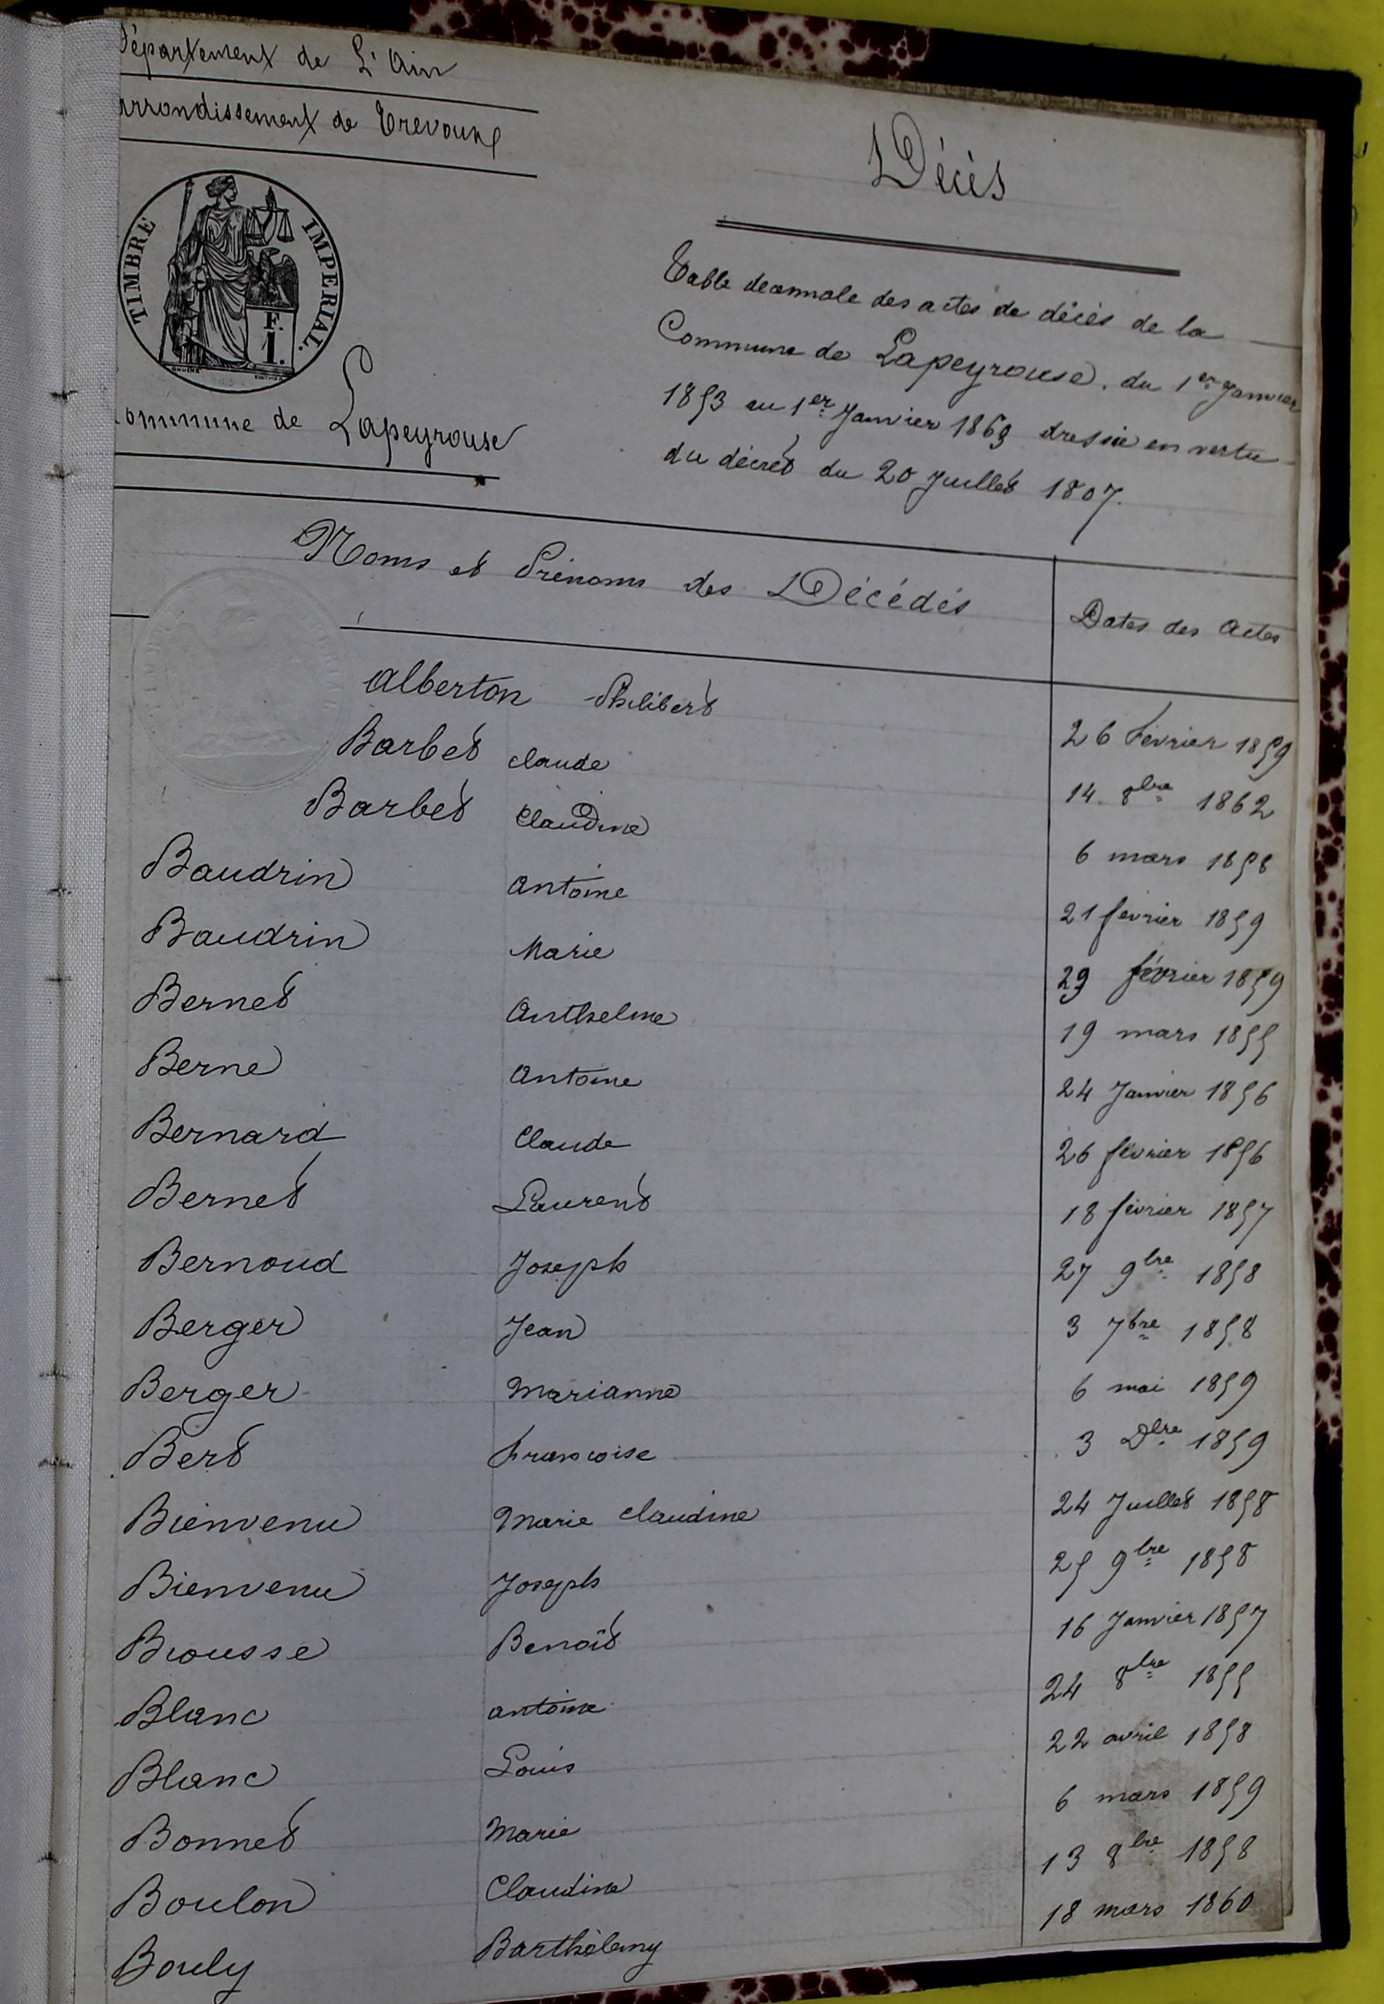 Département de L'Ain
arrondissement de Trevoux
TIMBRE IMPERIAL.
F.
1.
Commune de Lapeyrouse
Décès
Table decennale des actes de décès de la
Commune de Lapeyrouse. du 1er Janvier
1853 au 1er Janvier 1863 dressée en vertu
du décret du 20 Juillet 1807.
Noms et Prénoms des Décédés Dates des Actes
Alberton Philibert 26 février 1859
Barbet Claude 14 8bre 1862
Barbet Claudine 6 mars 1858
Baudrin Antoine 21 février 1859
Baudrin Marie 29 février 1859
Bernet Anthelme 19 mars 1855
Berne Antoine 24 Janvier 1856
Bernard Claude 26 février 1856
Bernet Laurent 18 février 1857
Bernoud Joseph 27 9bre 1858
Berger Jean 3 7bre 1858
Berger Marianne 6 mai 1859
Bert francoise 3 Dbre 1859
Bienvenu Marie Claudine 24 Juillet 1858
Bienvenu Joseph 25 9bre 1858
Brousse Benoît 16 Janvier 1857
Blanc antoine 24 8bre 1855
Blanc Louis 22 avril 1858
Bonnet Marie 6 mars 1859
Boulon Claudine 13 8bre 1858
Bouly Barthélemy 18 mars 1860